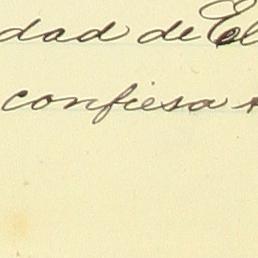 dad de El
confiesa